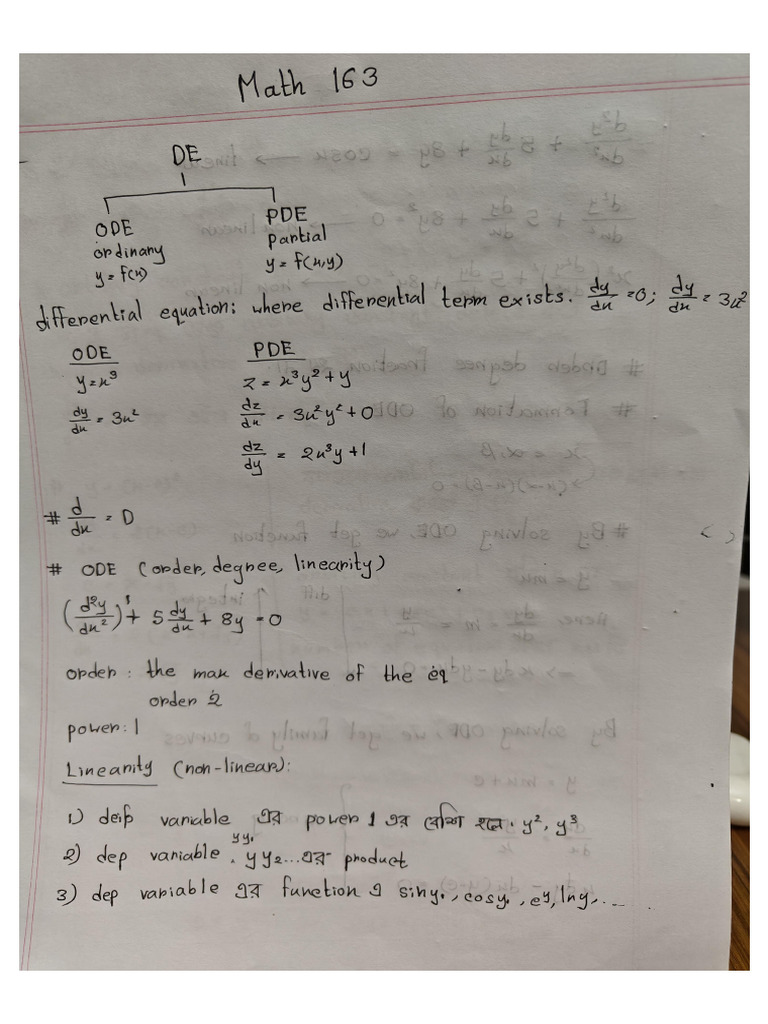 Math 163
DE
ODE PDE
ordinary partial
y = f(x) y = f(x,y)
differential equation: where differential term exists. dy/dx = 0; dy/dx = 3x²
ODE PDE
y = x³ z = x³y² + y
dy/dx = 3x² dz/dx = 3x²y² + 0
dz/dy = 2x³y + 1
# d/dx = D
# ODE (order, degree, linearity)
(d²y/dx²)¹ + 5 dy/dx + 8y = 0
order: the max derivative of the eq
order 2
power: 1
Linearity (non-linear):
1) dep variable এর power 1 এর বেশি হলে. y², y³
yy₁
2) dep variable. y y₂... এর product
3) dep variable এর function এ siny, cosy, eʸ, lny, ....